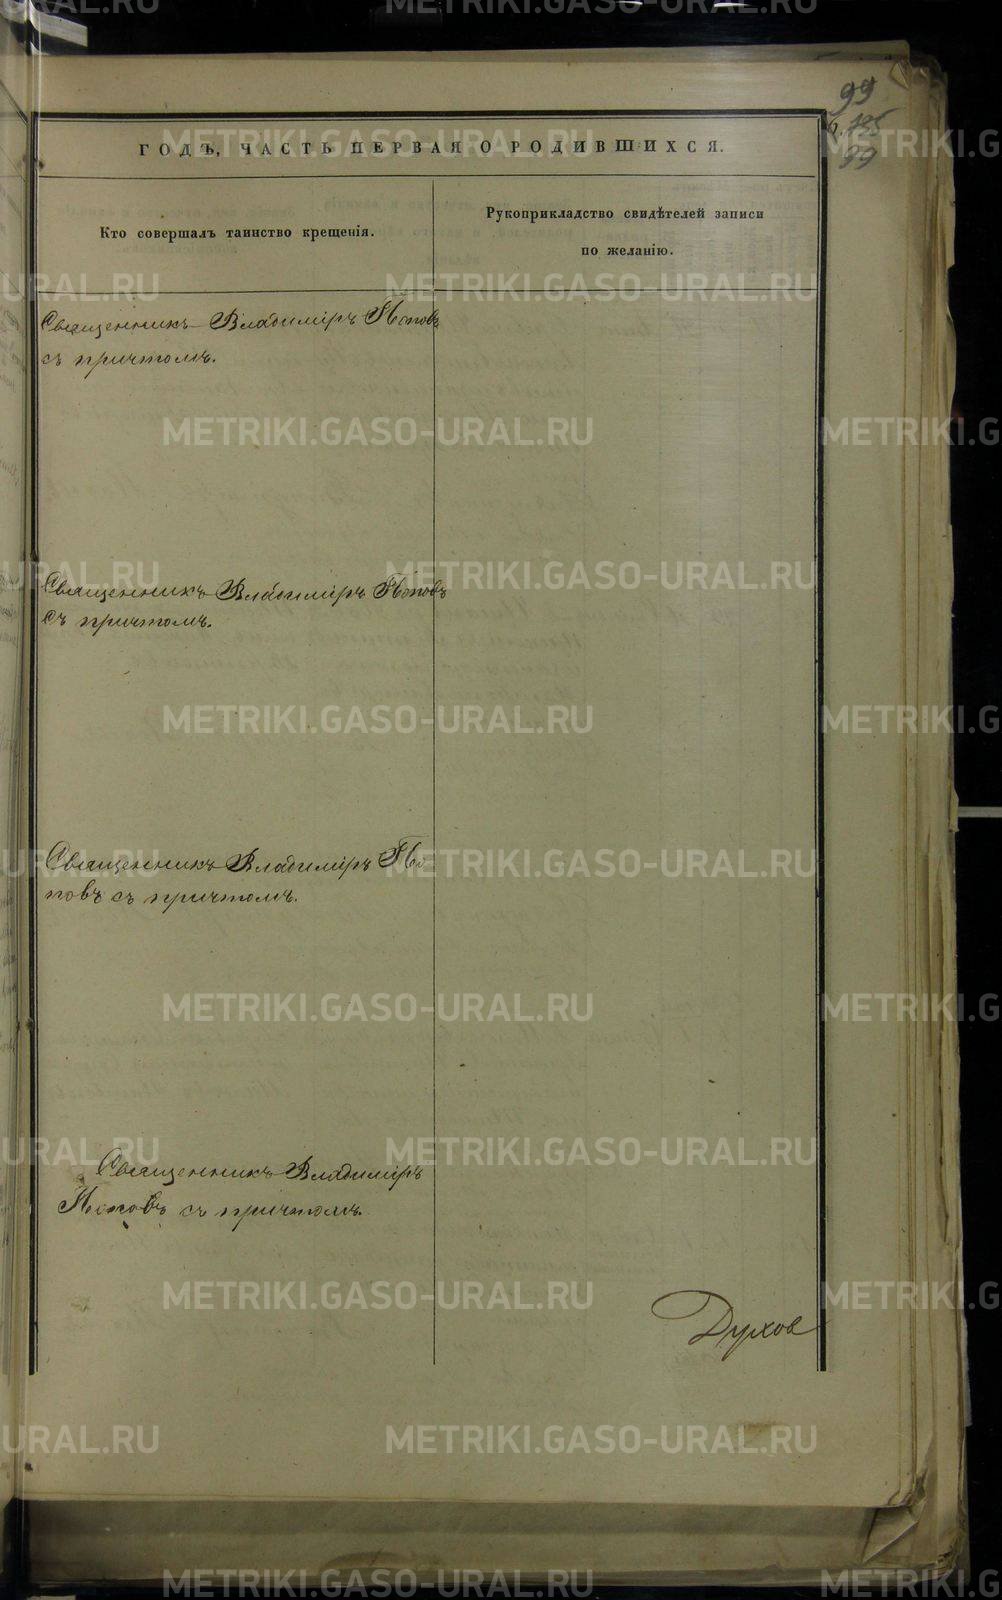 99
135
99
ГОДЪ, ЧАСТЬ ПЕРВАЯ О РОДИВШИХСЯ.
Кто совершалъ таинство крещенія.
Рукоприкладство свидѣтелей записи
по желанію.
Священникъ Владиміръ Поповъ
съ причтомъ.
Священникъ Владиміръ Поповъ
съ причтомъ.
Священникъ Владиміръ По
повъ съ причтомъ.
Священникъ Владиміръ
Поповъ съ причтомъ.
Духов
METRIKI.GASO-URAL.RU